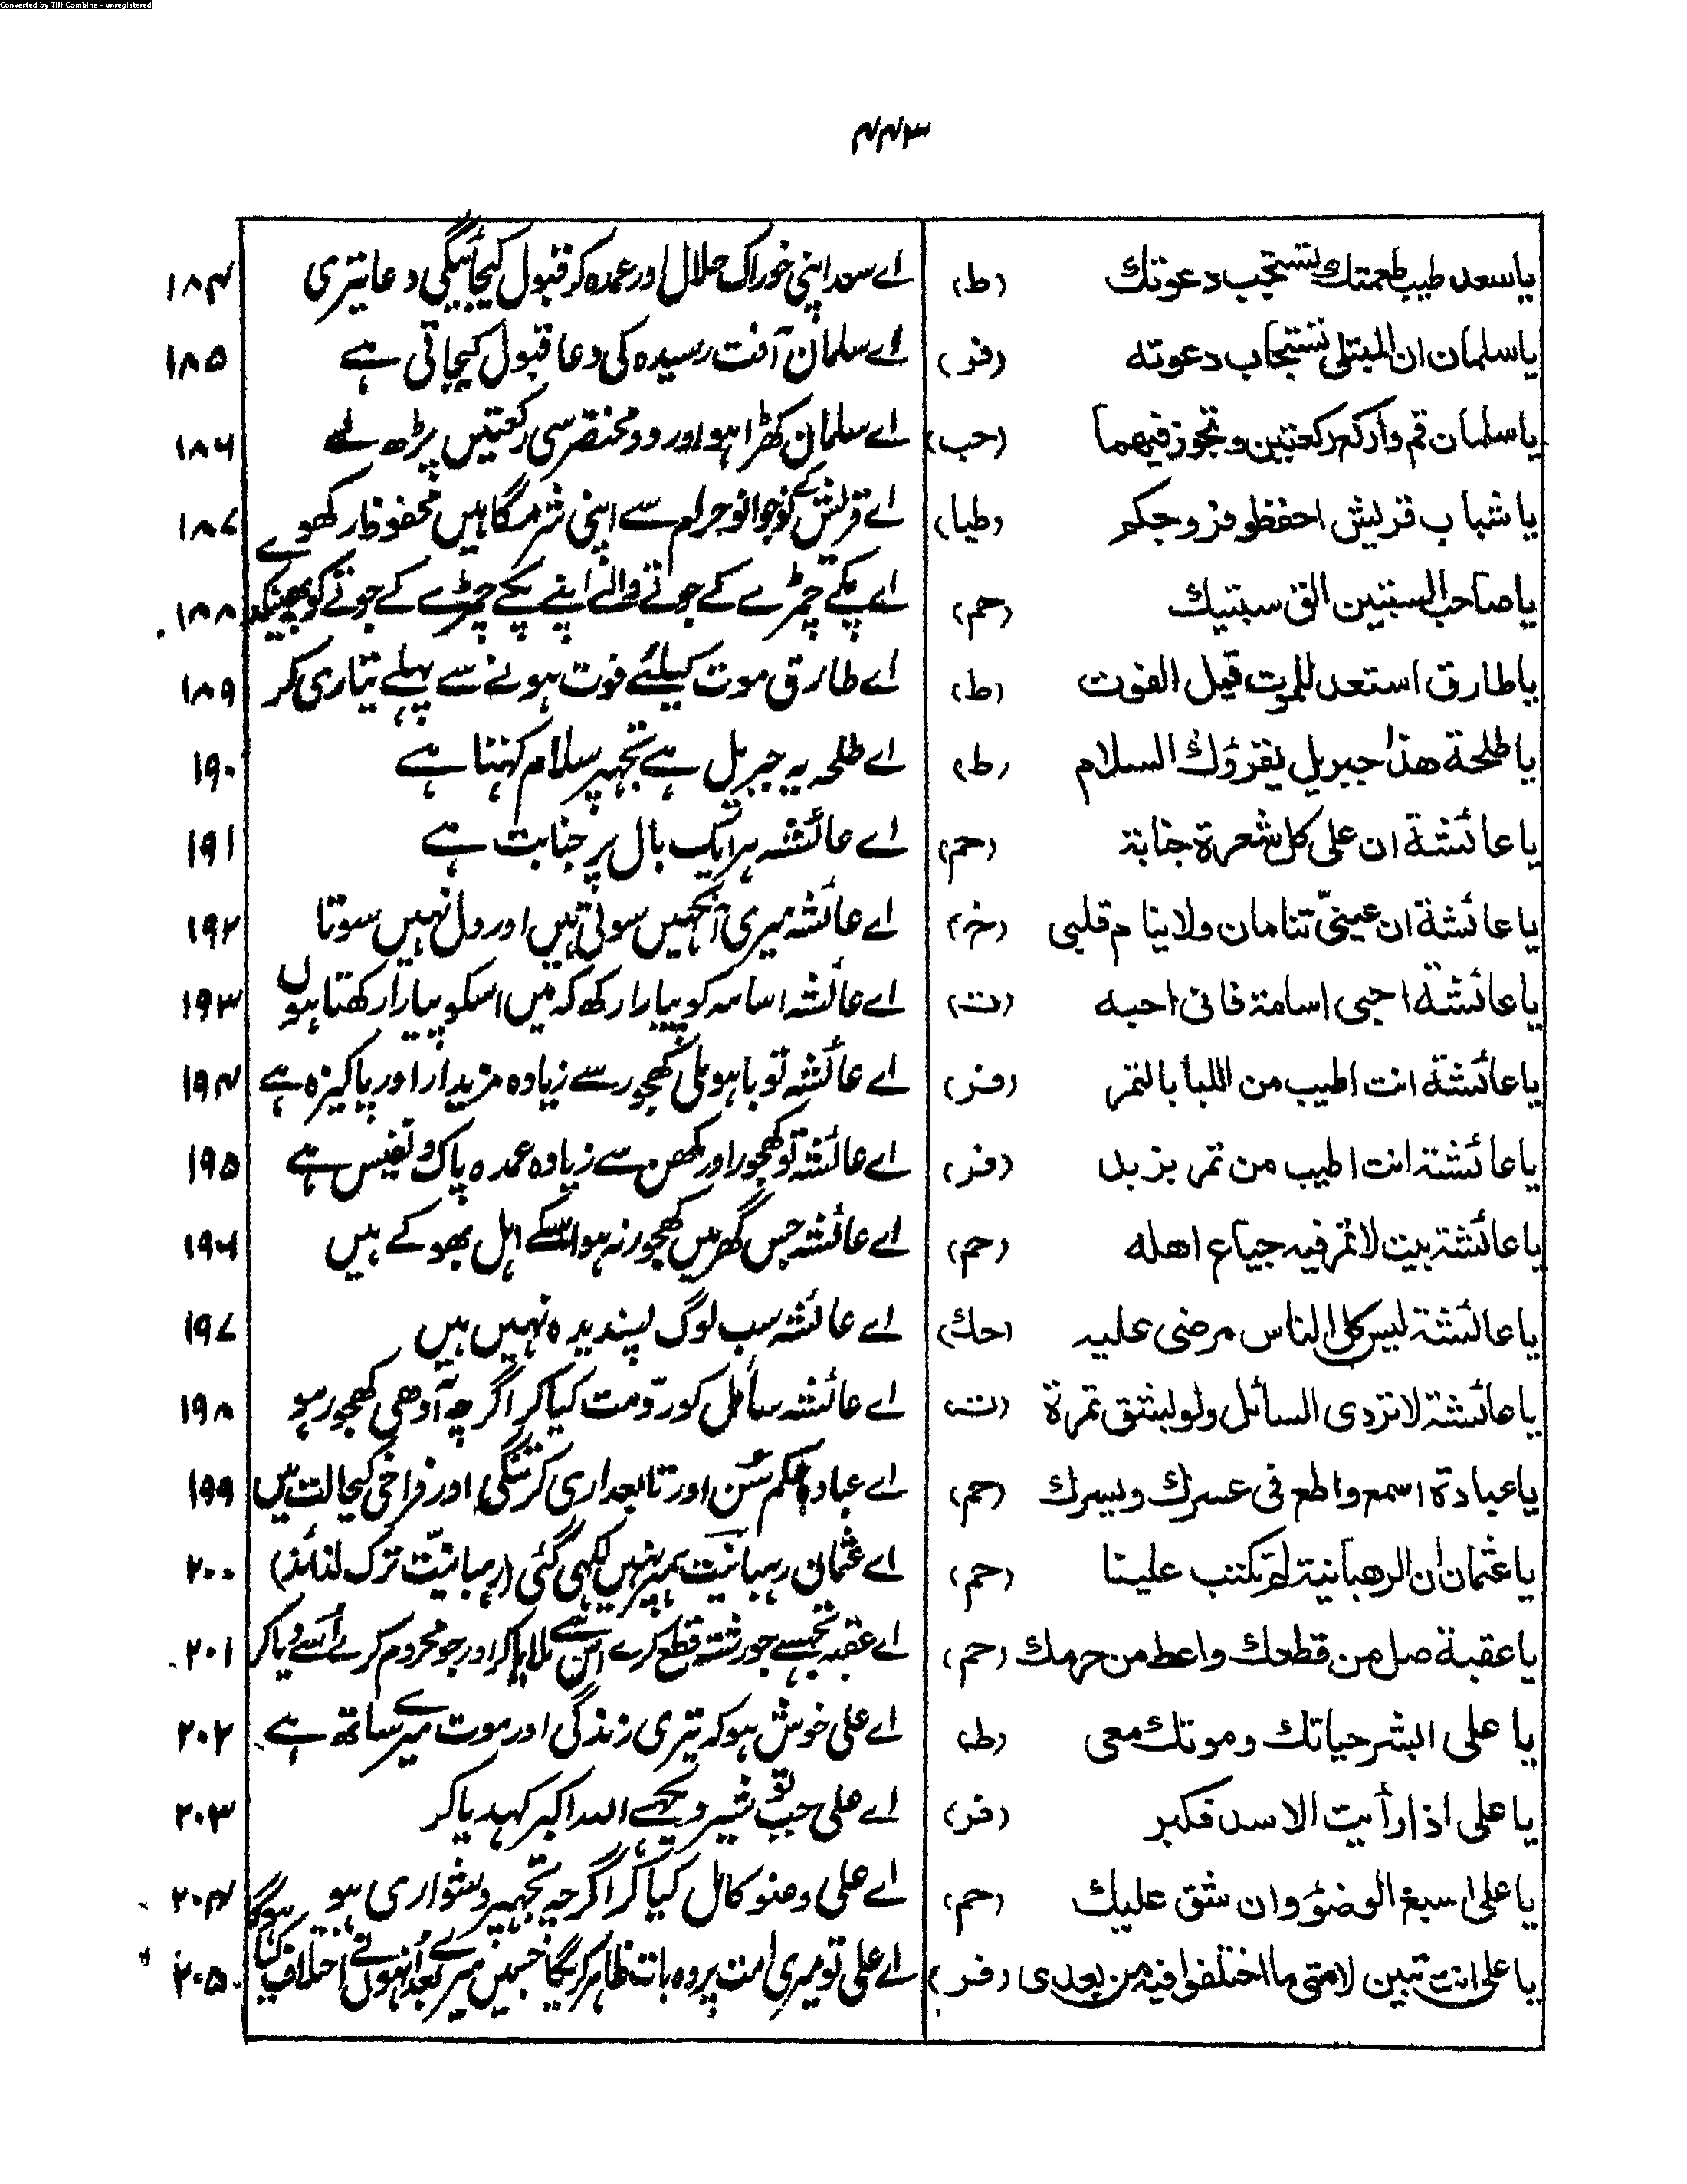 Converted by Tiff Combine - unregistered
۴۴۳
یا سعد طیب طعمتك تستجب دعوتك (ط) اے سعد اپنی خوراک حلال اور عمدہ کر قبول کیجائیگی دعا تیری ۱۸۴
یا سلمان ان المبتلی تستجاب دعوته (فر) اے سلمان آفت رسیدہ کی دعا قبول کیجاتی ہے ۱۸۵
یا سلمان قم وارکع رکعتین وتجوز فیهما (حب) اے سلمان کھڑا ہو اور دو مختصر سی رکعتیں پڑھ لے ۱۸۶
یا شباب قریش احفظوا فروجکم (طیا) اے قریش کے نوجوانو حرام سے اپنی شرمگاہیں محفوظ رکھو ۱۸۷
یا صاحب السبتین الق سبتیك (حم) اے پکے چمڑے کے جوتے والے اپنے پکے چمڑے کے جوتے کو پھینکد ۱۸۸
یا طارق استعد للموت قبل الفوت (ط) اے طارق موت کیلئے فوت ہونے سے پہلے تیاری کر ۱۸۹
یا طلحة هذا جبریل یقرؤك السلام (ط) اے طلحہ یہ جبریل ہے تجہپر سلام کہتا ہے ۱۹۰
یا عائشة ان علی کل شعرة جنابة (حم) اے عائشہ ہرایک بال پر جنابت ہے ۱۹۱
یا عائشة ان عینیّ تنامان ولا ینام قلبی (خ) اے عائشہ میری آنکہیں سوتی ہیں اور دل نہیں سوتا ۱۹۲
یا عائشة احبی اسامة فانی احبه (ت) اے عائشہ اسامہ کو پیارا رکھ کہ میں اسکو پیارا رکھتا ہوں ۱۹۳
یا عائشة انت اطیب من اللبا بالتمر (فر) اے عائشہ تو باہو ہلی کھجور سے زیادہ مزیدار اور پاکیزہ ہے ۱۹۴
یا عائشة انت اطیب من تمر بزبد (فر) اے عائشہ تو کھجور اور مکھن سے زیادہ عمدہ پاک و نفیس ہے ۱۹۵
یا عائشة بیت لا تمر فیه جیاع اهله (حم) اے عائشہ جس گھر میں کھجور نہ ہو اسکے اہل بھوکے ہیں ۱۹۶
یا عائشة لیس کل الناس مرضی علیه (حك) اے عائشہ سب لوگ پسندیدہ نہیں ہیں ۱۹۷
یا عائشة لا تردی السائل ولو بشق تمرة (ت) اے عائشہ سائل کو ردّ مت کیا کر اگرچہ آدھی کھجور ہو ۱۹۸
یا عبادة اسمع واطع فی عسرك ویسرك (حم) اے عبادہ حکم سُن اور تابعداری کر تنگی اور فراخی کیحالت میں ۱۹۹
یا عثمان ان الرهبانیة لم تکتب علینا (حم) اے عثمان رہبانیت ہمپر نہیں لکہی گئی (رہبانیّت ترک لذائذ) ۲۰۰
یا عقبة صل من قطعك واعط من حرمك (حم) اے عقبہ تجہسے جو رشتہ قطع کرے اس سے ملا کر اور جو محروم کرے اُسے دیا کر ۲۰۱
یا علی البشر حیاتك وموتك معی (ط) اے علی خوش ہو کہ تیری زندگی اور موت میرے ساتھ ہے ۲۰۲
یا علی اذا رأیت الاسد فکبر (فر) اے علی جب تو شیر دیکہے اللہ اکبر کہدیا کر ۲۰۳
یا علی اسبغ الوضوٴ وان شق علیك (حم) اے علی وضو کامل کیا کر اگرچہ تجہپر دشواری ہو ۲۰۴
یا علی انت تبین لامتی ما اختلفوا فیه من بعدی (فر) اے علی تو میری امت پر وہ بات ظاہر کریگا جسمیں میرے بعد اُنہوں نے اختلاف کیا ہوگا ۲۰۵